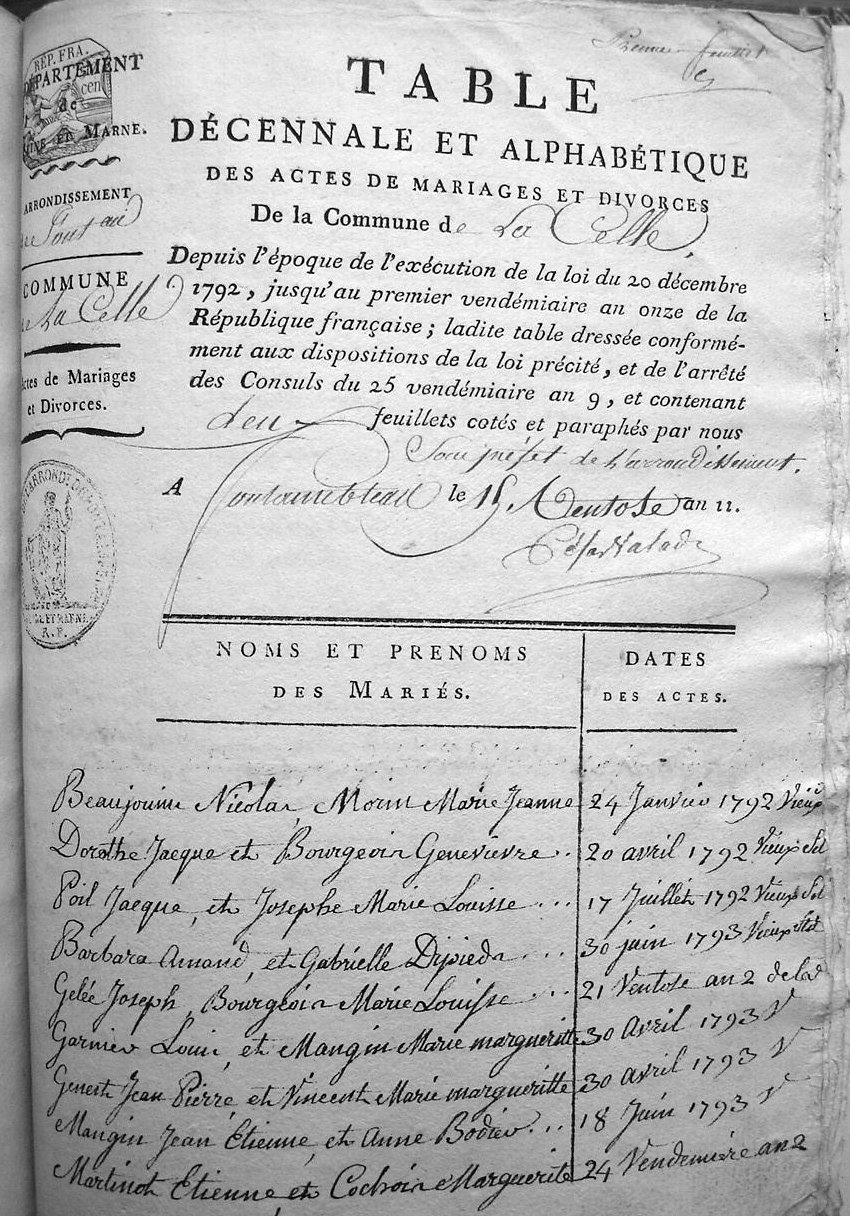 Premier feuillet
RÉP. FRA.
DÉPARTEMENT
de
SEINE ET MARNE.
ARRONDISSEMENT
COMMUNE
de La Celle
Actes de Mariages
et Divorces.
TABLE
DÉCENNALE ET ALPHABÉTIQUE
DES ACTES DE MARIAGES ET DIVORCES
De la Commune de La Celle,
Depuis l'époque de l'exécution de la loi du 20 décembre
1792, jusqu'au premier vendémiaire an onze de la
République française; ladite table dressée conformé-
ment aux dispositions de la loi précité, et de l'arrêté
des Consuls du 25 vendémiaire an 9, et contenant
deux feuillets cotés et paraphés par nous
Sous préfet de l'arrondissement.
A fontainebleau le 15 Ventose an 11.
A. F.
NOMS ET PRENOMS
DES MARIÉS.
DATES
DES ACTES.
Nicolas, Morin Marie Jeanne 24 Janvier 1792 Vieux
Dorothe Jacque et Bourgeois Genevievre .. 20 avril 1792 Vieux Stel
Poil Jacque, et Josephe Marie Louisse ... 17 Juillet 1792 Vieux Stel
Barbara Amand, et Gabrielle Dipieds ... 30 juin 1793 Vieux Stel
Gelée Joseph, Bourgeois Marie Louisse ... 21 Ventose an 2 de la
Garnier Louis, et Mangin Marie margueritte 30 Avril 1793 V
Genest Jean Pierre, et Vincent Marie margueritte 30 avril 1793 V
Mangin Jean Etienne, et Anne Bodier ... 18 Juin 1793 V
Martinot Etienne, et Cochois Marguerite 24 Vendemiere an 2